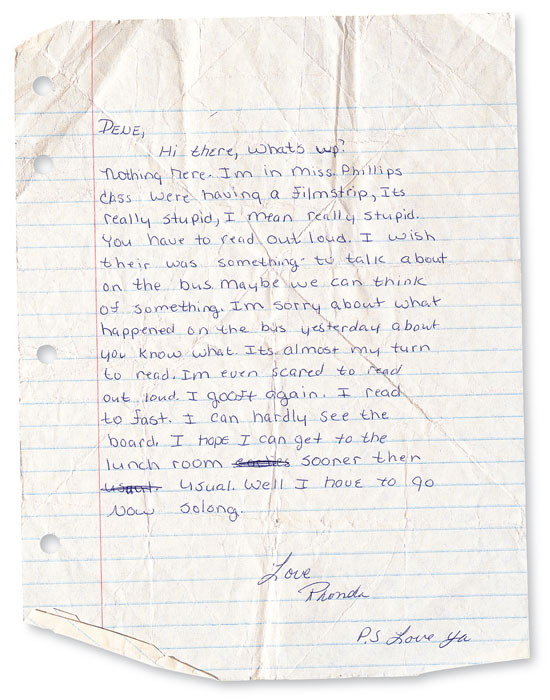 DENE,
Hi there, whats up?
Nothing here. Im in Miss. Phillips
class were having a filmstrip, Its
really stupid, I mean really stupid.
You have to read out loud. I wish
their was something to talk about
on the bus. maybe we can think
of something. Im sorry about what
happened on the bus yesterday about
you know what. Its almost my turn
to read. Im even scared to read
out loud. I gooft again. I read
to fast. I can hardly see the
board. I hope I can get to the
lunch room sooner then
usual. Well I have to go
Now solong.
Love
Rhonda
P.S Love ya